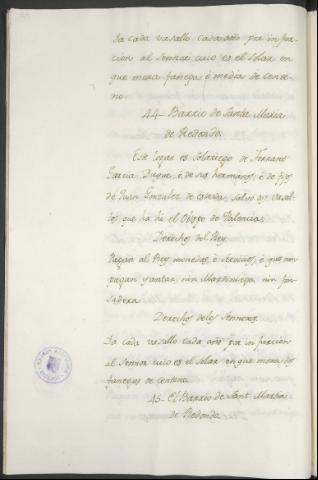 Da cada vasallo cada año por infur
cion al Sennor cuio es el Solar en
que mora fanega é media de Cente
no.
44- Barrio de Santa Maria
de Redondo.
Este logar es Solariego de Ferrant
Garcia Duque, é de sus hermanos, é de fijos
de Juan Gonzalez de
que ha hi el Obispo de Palencia.
Derechos del Rey.
Pagan al Rey monedas, é Servicios, é que non
pagan yantar, nin Martiniega, nin fon
sadera.
Derechos de los Sennores.
Da cada vasallo cada año por infurcion
al Sennor cuio es el Solar en que mora dos
fanegas de centeno.
45- El Barrio de Sant Martin
de Redondo.